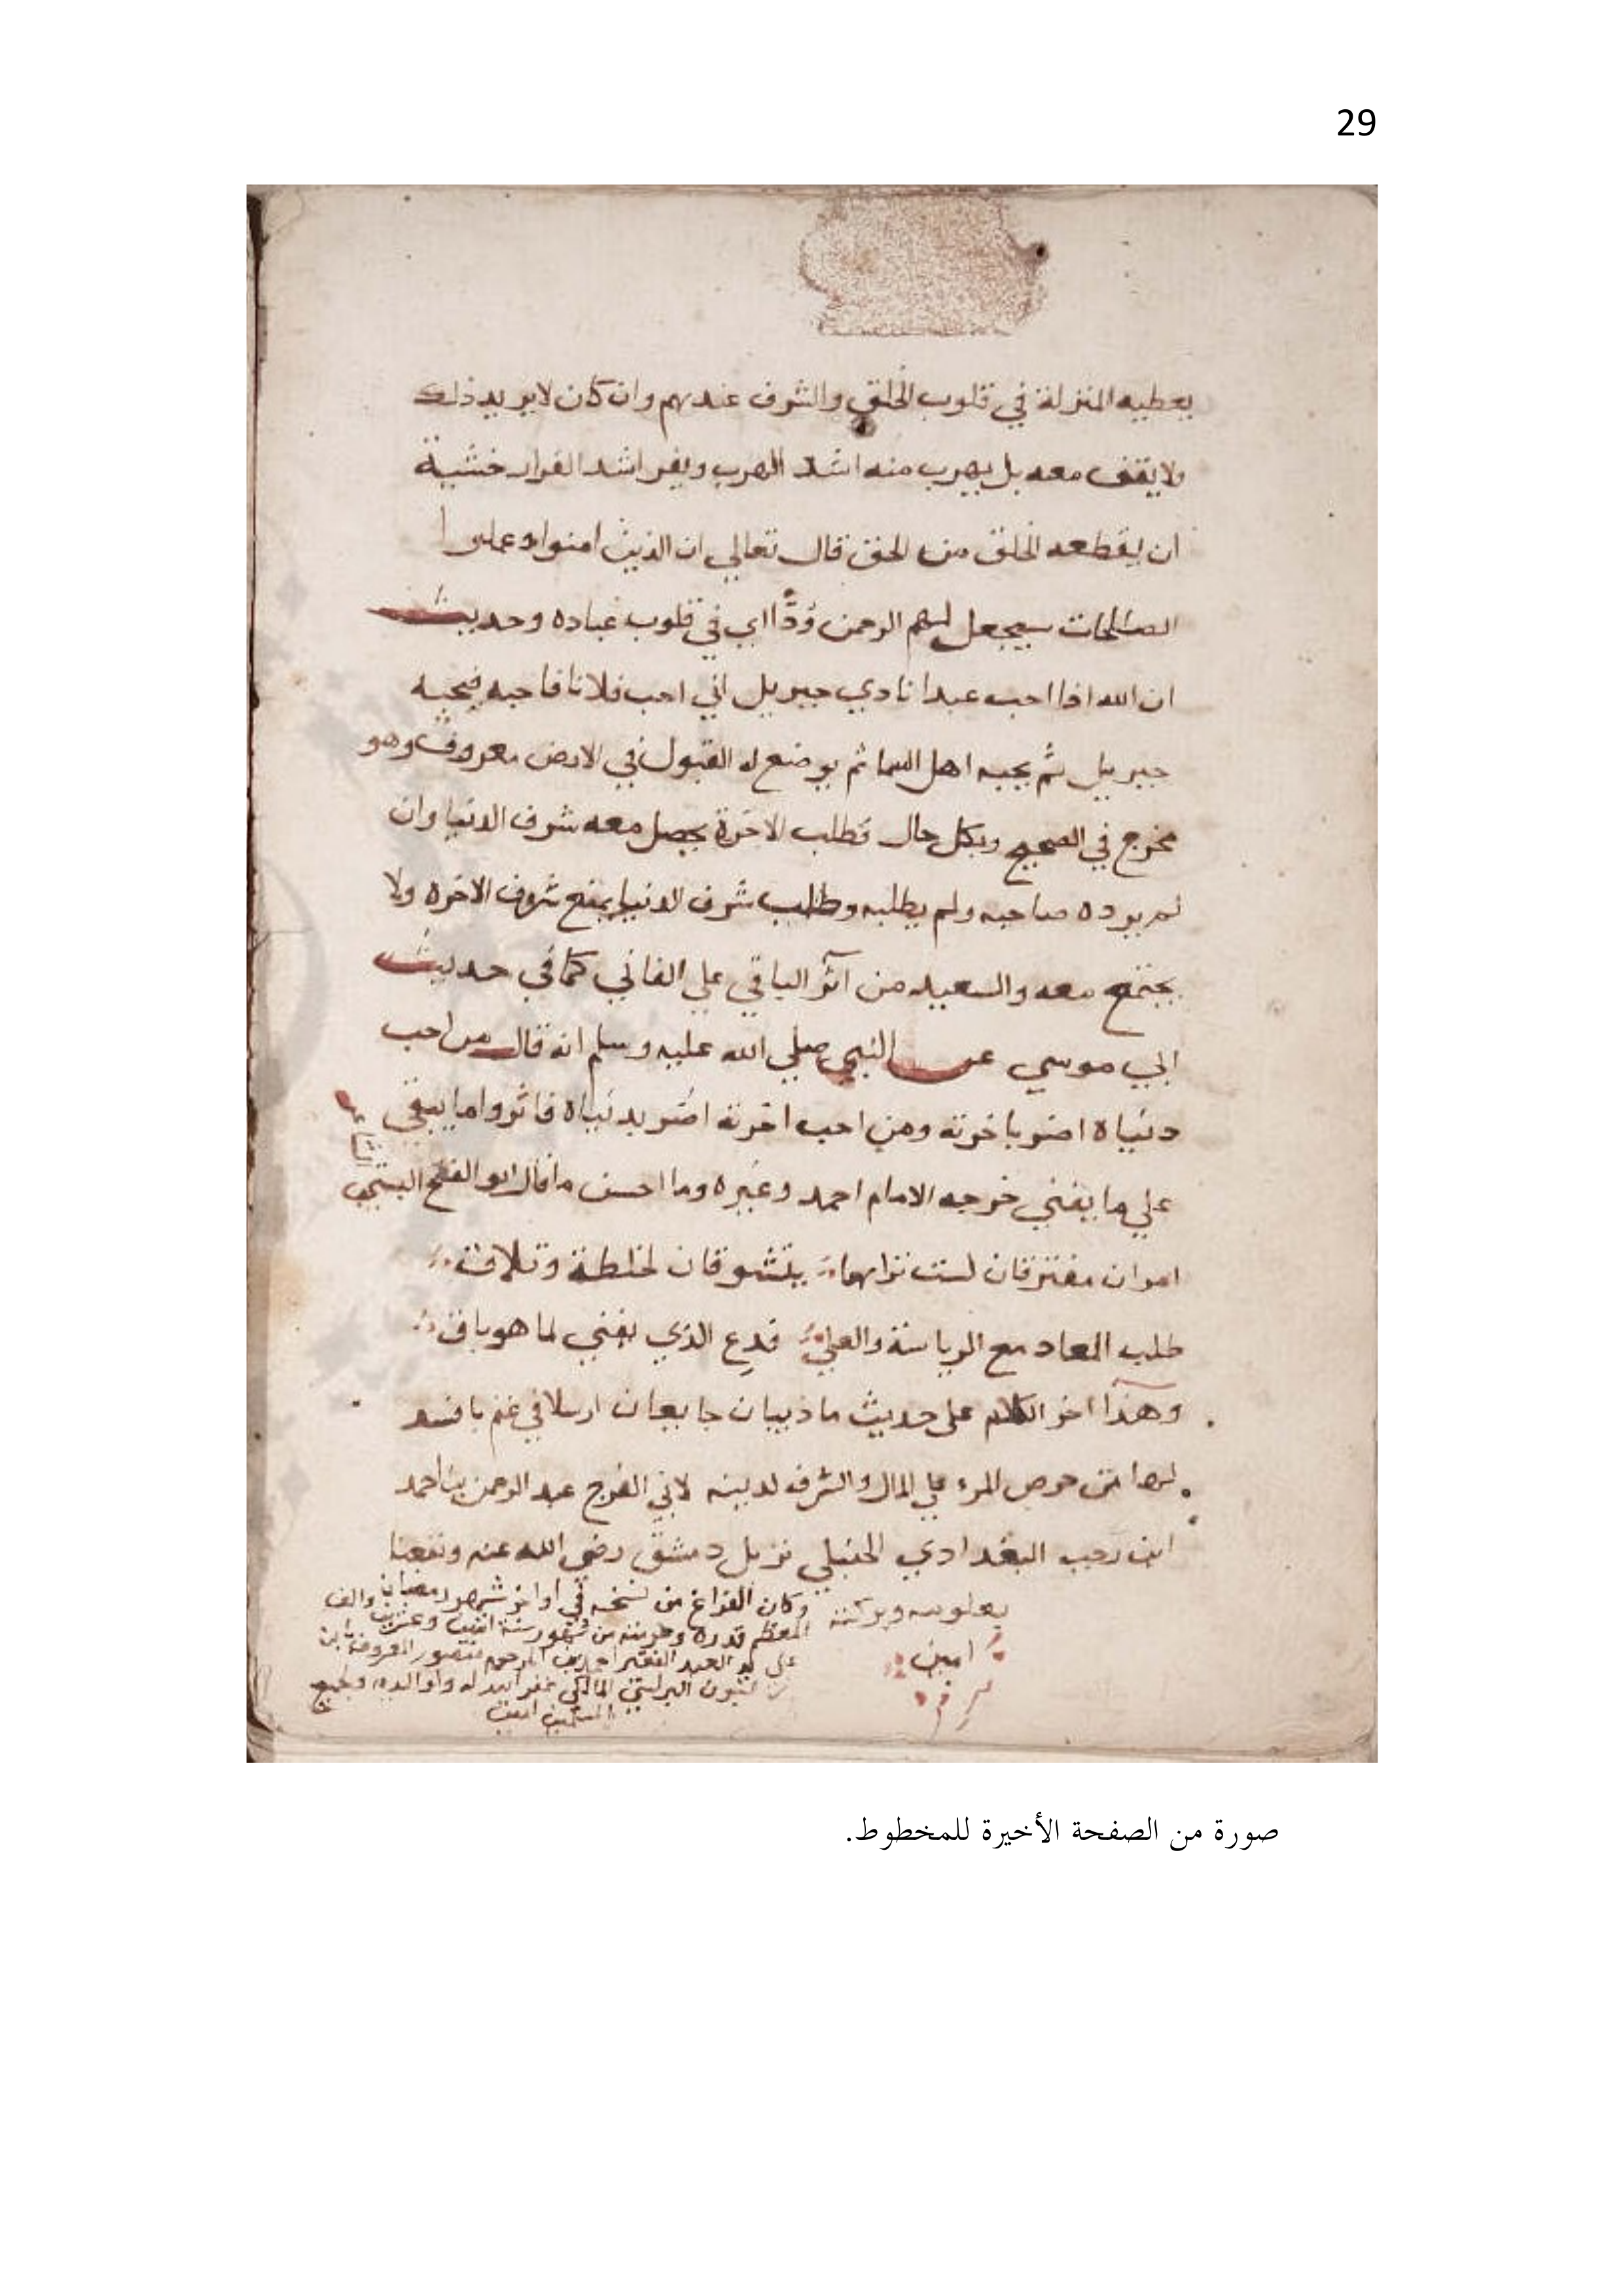 29
يعطيه المنزلة في قلوب الخلق والشرف عندهم وان كان لا يريد ذلك
ولا يقف معه بل يهرب منه اشد الهرب ويفر اشد الفرار خشية
ان يقطعه الخلق من الحق قال تعالي ان الذين امنوا وعملوا
الصالحات سيجعل لهم الرحمن وُدًّا اي في قلوب عباده وحديث
ان الله اذا احب عبدا نادي جبريل اني احب فلانا فاحبه فيحبه
جبريل ثم يحبه اهل السما ثم يوضع له القبول في الارض معروف وهو
مخرج في الصحيح وبكل حال فطلب الاخرة يحصل معه شرف الدنيا وان
لم يرده صاحبه ولم يطلبه وطلب شرف الدنيا يمنع شرف الاخره ولا
يجتمع معه والسعيد من آثر الباقي علي الفاني كما في حديث
ابي موسي عن النبي صلي الله عليه وسلم انه قال من احب
دنياه اضر باخرته ومن احب اخرته اضر بدنياه فاثروا ما يبقي
علي ما يفني خرجه الامام احمد وغيره وما احسن ما قال ابو الفتح البستي
امران مفترقان لست تراهما يتشوقان لخلطة وتلاق
طلب المعاد مع الرياسة والعلي فدع الذي يفني لما هو باق
وهذا اخر الكلام على حديث ما ذيبان جايعان ارسلا في غنم بافسد
لها من حرص المرء علي المال والشرف لدينه لابي الفرج عبد الرحمن بن احمد
ابن رجب البغدادي الحنبلي نزيل دمشق رضي الله عنه ونفعنا
بعلومه وبركته
امين
وكان الفراغ من نسخه في اواخر شهر رمضان
المعظم قدره وحرمته من شهور سنة اثنين وعشرين والف
علي يد العبد الفقير احمد بن المرحوم منصور المعروف بابن
البرلسي المالكي غفر الله له ولوالديه ولجميع
المسلمين امين
صورة من الصفحة الأخيرة للمخطوط.